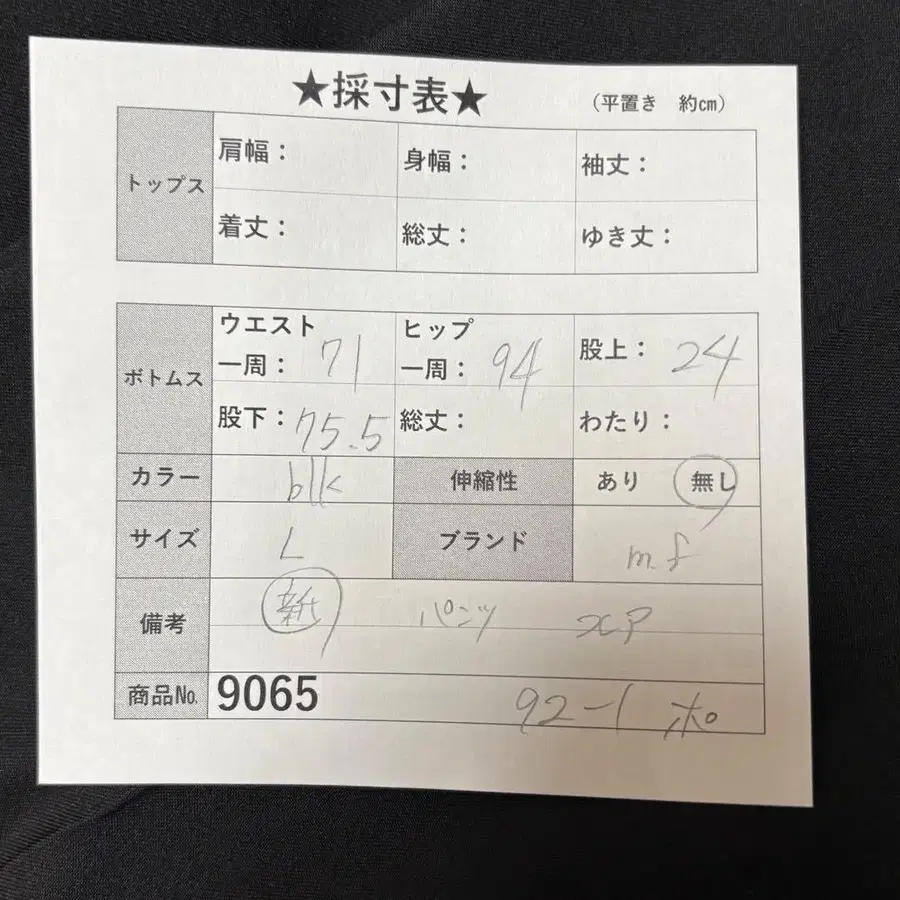 ★採寸表★ （平置き 約㎝）
トップス 肩幅： 身幅： 袖丈：
着丈： 総丈： ゆき丈：
ボトムス ウエスト一周：71 ヒップ一周：94 股上：24
股下：75.5 総丈： わたり：
カラー blk 伸縮性 あり 無し
サイズ L ブランド m.f
備考 新 パンツ
商品No. 9065 92-1 ポ